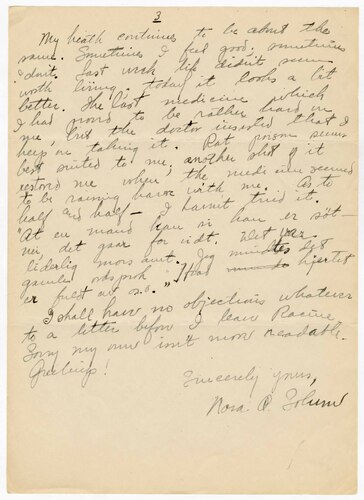 3
My heath continues to be about the
same. Sometimes I feel good, sometimes
I don't. Last week life didn't seem
worth living, today it looks a bit
better. The last medicine which
I had proved to be rather hard on
me, but the doctor insisted that I
keep on taking it. Rat poison seems
best suited to me, another shot of it
restored me when the medicine seemed
to be raising havoc with me. As to
half and half — I haven't tried it.
"At en mand kan
det gaar for vidt. Det er
liderlig morsomt. Jeg mindes det
gamle ordsprok "Hvad hjertet
er fuldt av o.s.v."
I shall have no objections whatever
to a letter before I leave Racine.
Sorry my own isn't more readable.
Greetings!
Sincerely yours,
Nora O. Solum